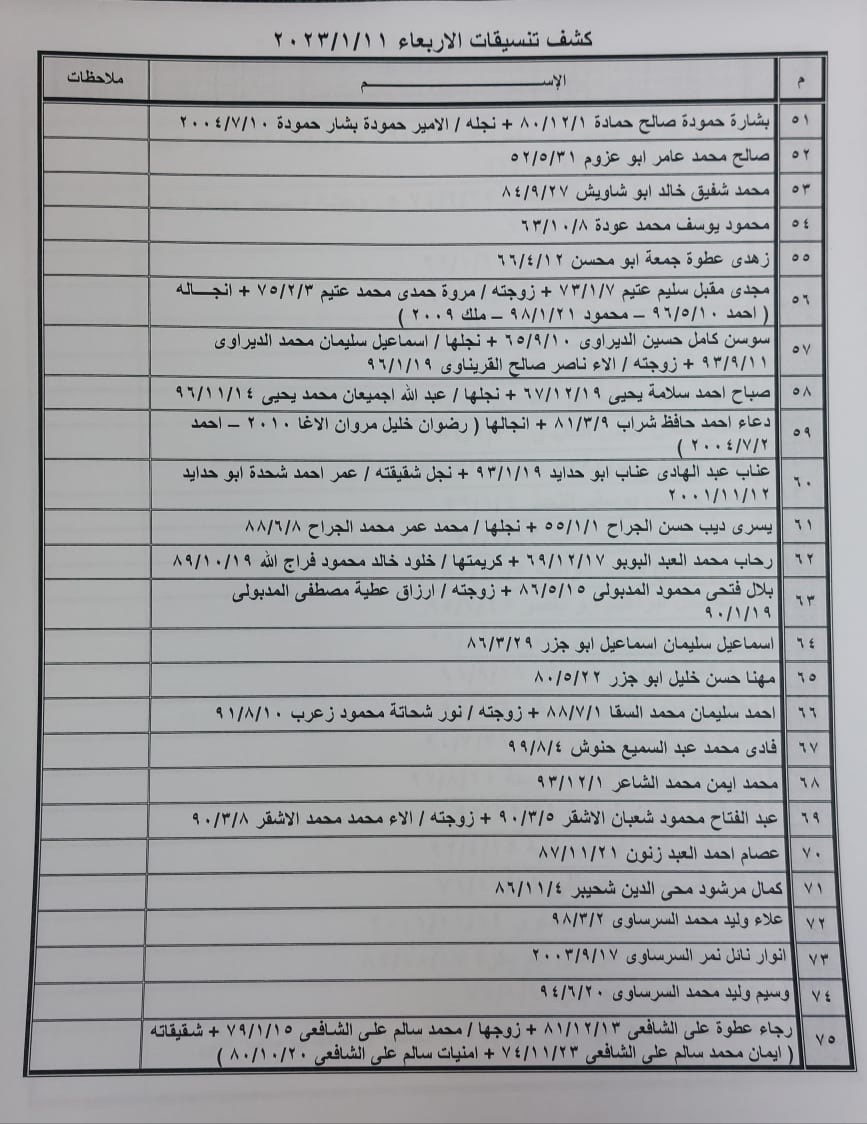 كشف تنسيقات الاربعاء ٢٠٢٣/١/١١
م الإســـــــم ملاحظات
٥١ بشارة حمودة صالح حمادة ٨٠/١٢/١ + نجله / الامير حمودة بشار حمودة ٢٠٠٤/٧/١٠
٥٢ صالح محمد عامر ابو عزوم ٥٢/٥/٣١
٥٣ محمد شفيق خالد ابو شاويش ٨٤/٩/٢٧
٥٤ محمود يوسف محمد عودة ٦٣/١٠/٨
٥٥ زهدى عطوة جمعة ابو محسن ٦٦/٤/١٢
٥٦ مجدى مقبل سليم عتيم ٧٣/١/٧ + زوجته / مروة حمدى محمد عتيم ٧٥/٢/٣ + انجـــاله
( احمد ٩٦/٥/١٠ – محمود ٩٨/١/٢١ – ملك ٢٠٠٩ )
٥٧ سوسن كامل حسين الديراوى ٦٥/٩/١٠ + نجلها / اسماعيل سليمان محمد الديراوى
٩٣/٩/١١ + زوجته / الاء ناصر صالح القريناوى ٩٦/١/١٩
٥٨ صباح احمد سلامة يحيى ٦٧/١٢/١٩ + نجلها / عبد الله اجميعان محمد يحيى ٩٦/١١/١٤
٥٩ دعاء احمد حافظ شراب ٨١/٣/٩ + انجالها ( رضوان خليل مروان الاغا ٢٠١٠ – احمد
٢٠٠٤/٧/٢ )
٦٠ عناب عبد الهادى عناب ابو حدايد ٩٣/١/١٩ + نجل شقيقته / عمر احمد شحدة ابو حدايد
٢٠٠١/١١/١٢
٦١ يسرى ديب حسن الجراح ٥٥/١/١ + نجلها / محمد عمر محمد الجراح ٨٨/٦/٨
٦٢ رحاب محمد العبد البوبو ٦٩/١٢/١٧ + كريمتها / خلود خالد محمود فراج الله ٨٩/١٠/١٩
٦٣ بلال فتحى محمود المدبولى ٨٦/٥/١٥ + زوجته / ارزاق عطية مصطفى المدبولى
٩٠/١/١٩
٦٤ اسماعيل سليمان اسماعيل ابو جزر ٨٦/٣/٢٩
٦٥ مهنا حسن خليل ابو جزر ٨٠/٥/٢٢
٦٦ احمد سليمان محمد السقا ٨٨/٧/١ + زوجته / نور شحاتة محمود زعرب ٩١/٨/١٠
٦٧ فادى محمد عبد السميع حنوش ٩٩/٨/٤
٦٨ محمد ايمن محمد الشاعر ٩٣/١٢/١
٦٩ عبد الفتاح محمود شعبان الاشقر ٩٠/٣/٥ + زوجته / الاء محمد محمد الاشقر ٩٠/٣/٨
٧٠ عصام احمد العبد زنون ٨٧/١١/٢١
٧١ كمال مرشود محى الدين شحيبر ٨٦/١١/٤
٧٢ علاء وليد محمد السرساوى ٩٨/٣/٢
٧٣ انوار نائل نمر السرساوى ٢٠٠٣/٩/١٧
٧٤ وسيم وليد محمد السرساوى ٩٤/٦/٢٠
٧٥ رجاء عطوة على الشافعى ٨١/١٢/١٣ + زوجها / محمد سالم على الشافعى ٧٩/١/١٥ + شقيقاته
( ايمان محمد سالم على الشافعى ٧٤/١١/٢٣ + امنيات سالم على الشافعى ٨٠/١٠/٢٠ )